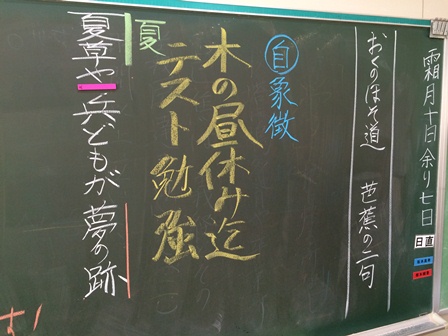 霜月十日余り七日
日直
おくのほそ道 芭蕉の二句
自象徴
木の昼休み迄
テスト勉強
夏
夏草や兵どもが夢の跡